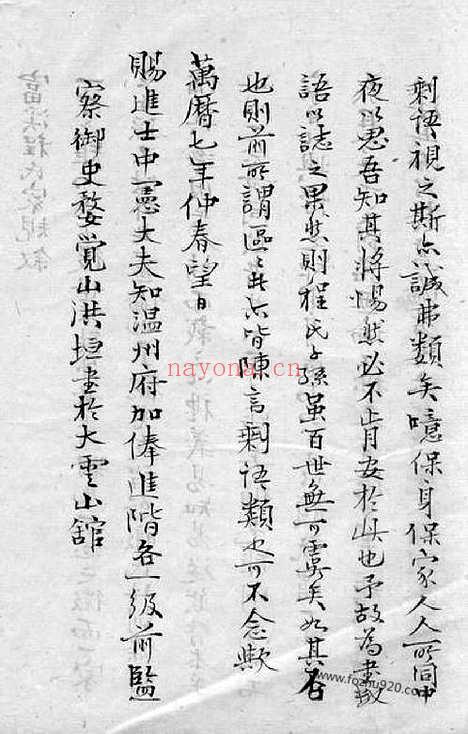 剩语視之斯亦誠弗類矣噫保身保家人人所同
夜以思吾知其將惕然必不肯安於此也予故為書数
語以誌之果然則程氏子孫虽百世無可虞矣如其否
也則前所謂區區此亦皆陳言剩语類也可不念歟
萬曆七年仲春望日
賜進士中憲大夫知温州府加俸進階各一級前監
察御史婺覺山洪垣書於大雲山舘
富溪程氏家規叙
nayona.cn
www.fozhu920.com